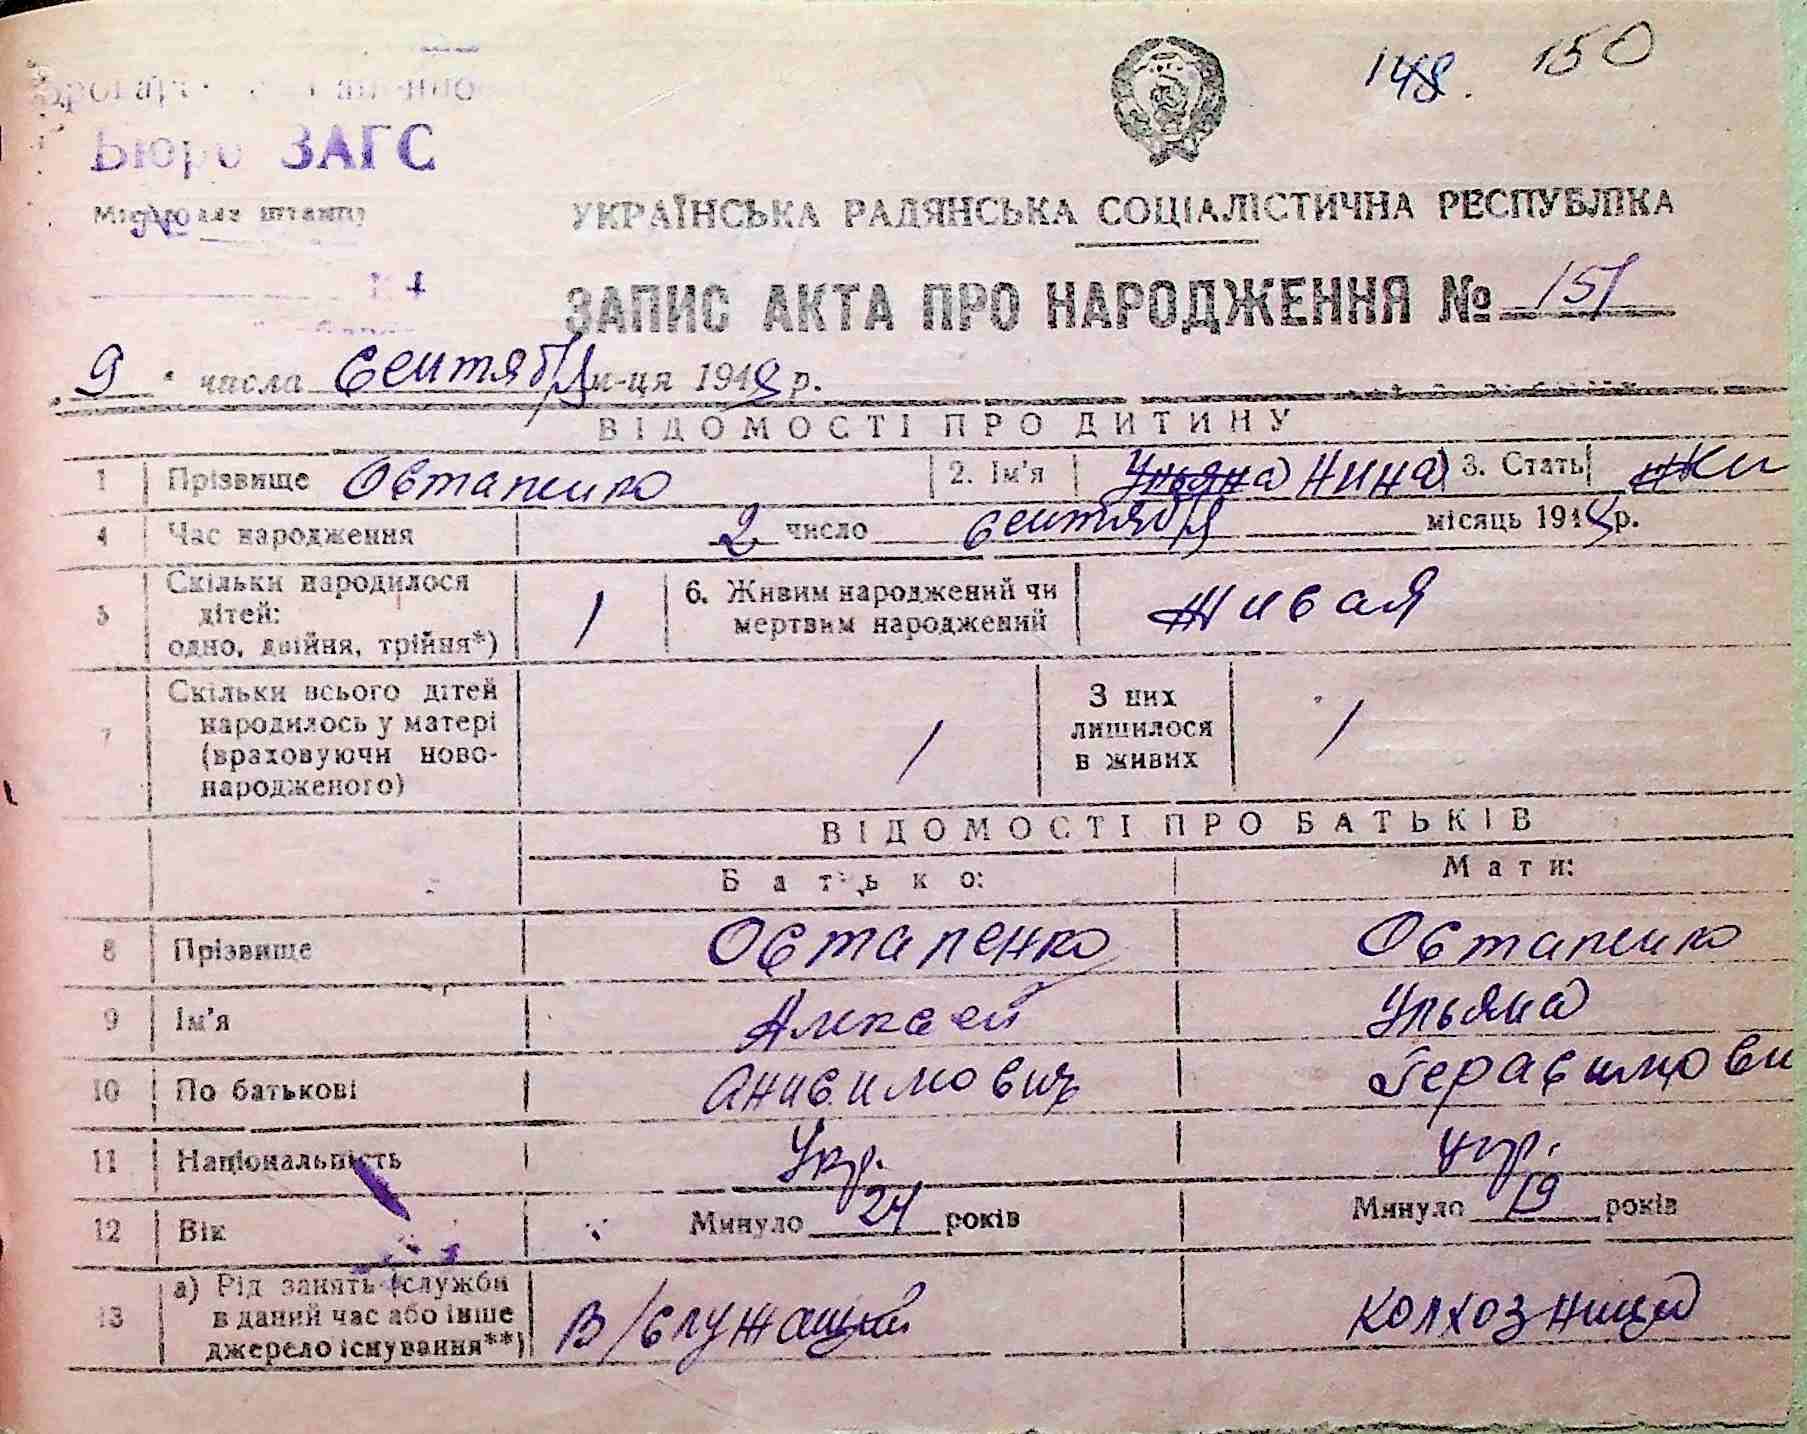 148. 150
Бюро ЗАГС
УКРАЇНСЬКА РАДЯНСЬКА СОЦІАЛІСТИЧНА РЕСПУБЛІКА
ЗАПИС АКТА ПРО НАРОДЖЕННЯ № 151
9 числа сентября м-ця 1948 р.
ВІДОМОСТІ ПРО ДИТИНУ
1 Прізвище Остапенко 2. Ім'я Ульяна Нина 3. Стать
4 Час народження 2 число сентября місяць 1948 р.
5 Скільки народилося
дітей:
одно, двійня, трійня*) 1 6. Живим народжений чи
мертвим народжений Живая
7 Скільки всього дітей
народилось у матері
(враховуючи ново-
народженого) 1 З них
лишилося
в живих 1
ВІДОМОСТІ ПРО БАТЬКІВ
Батько: Мати:
8 Прізвище Остапенко Остапенко
9 Ім'я Алексей Ульяна
10 По батькові Анисимович Герасимови
11 Національність Укр. укр.
12 Вік Минуло 24 років Минуло 19 років
13 а) Рід занять (служби
в даний час або інше
джерело існування**) В/служащий колхозница